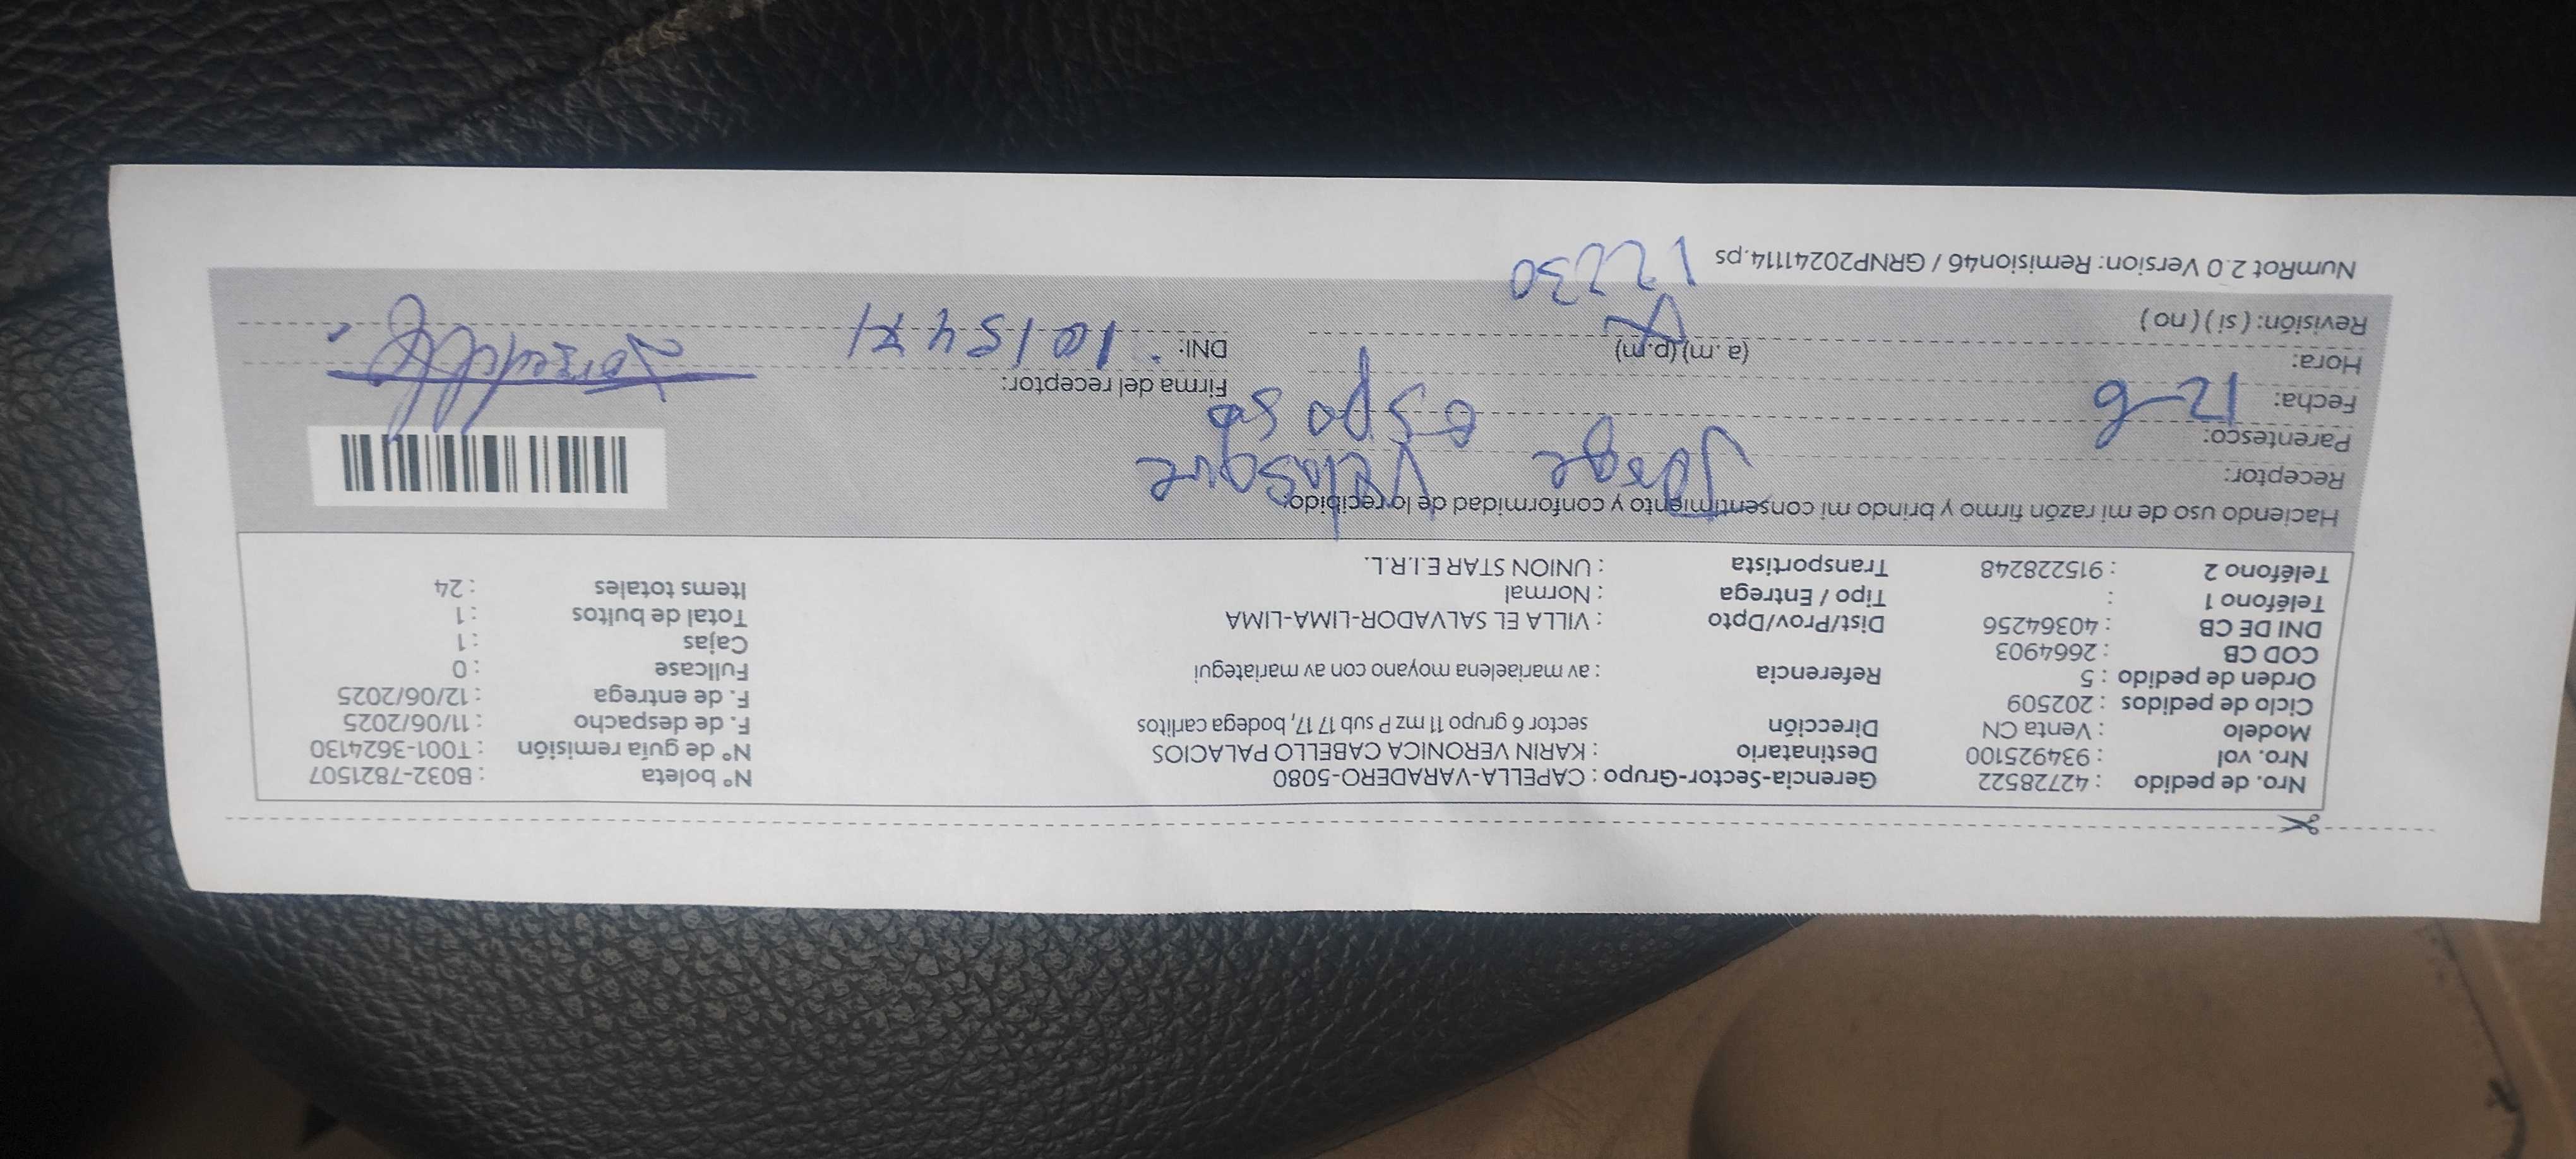 Nro. de pedido : 42728522 Gerencia-Sector-Grupo : CAPELLA-VARADERO-5080 N° boleta : B032-7821507
Nro. vol : 934925100 Destinatario : KARIN VERONICA CABELLO PALACIOS N° de guía remisión : T001-3624130
Modelo : Venta CN Dirección sector 6 grupo 11 mz P sub 17 17, bodega carlitos F. de despacho : 11/06/2025
Ciclo de pedidos : 202509 F. de entrega : 12/06/2025
Orden de pedido : 5 Referencia : av mariaelena moyano con av mariategui Fullcase : 0
COD CB : 2664903 Cajas : 1
DNI DE CB : 40364256 Dist/Prov/Dpto : VILLA EL SALVADOR-LIMA-LIMA Total de bultos : 1
Teléfono 1 : Tipo / Entrega : Normal Items totales : 24
Teléfono 2 : 915228248 Transportista : UNION STAR E.I.R.L.
Haciendo uso de mi razón firmo y brindo mi consentimiento y conformidad de lo recibido:
Receptor: Jorge
Parentesco: esposo
Fecha: 12-6 Firma del receptor:
Hora: (a.m) (p.m) DNI:
Revisión: ( si ) ( no )
NumRot 2.0 Version: Remision46 / GRNP20241114.ps 12230